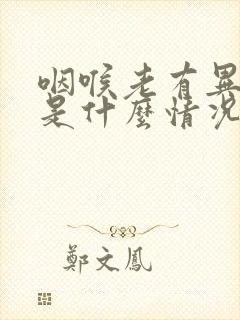 咽喉老有異
是什麼情況
鄭文鳳